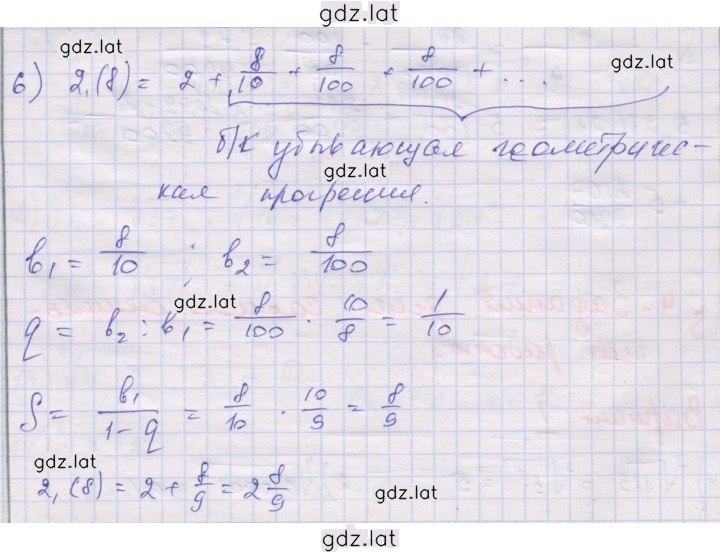 gdz.lat
gdz.lat
gdz.lat
б) 2,(8) = 2 + 8/10 + 8/100 + 8/100 + ...
б/к убывающая геометричес-
gdz.lat
кая прогрессия.
b₁ = 8/10 ; b₂ = 8/100
gdz.lat
q = b₂ : b₁ = 8/100 · 10/8 = 1/10
S = b₁/(1-q) = 8/10 · 10/9 = 8/9
gdz.lat
2,(8) = 2 + 8/9 = 2 8/9
gdz.lat
gdz.lat